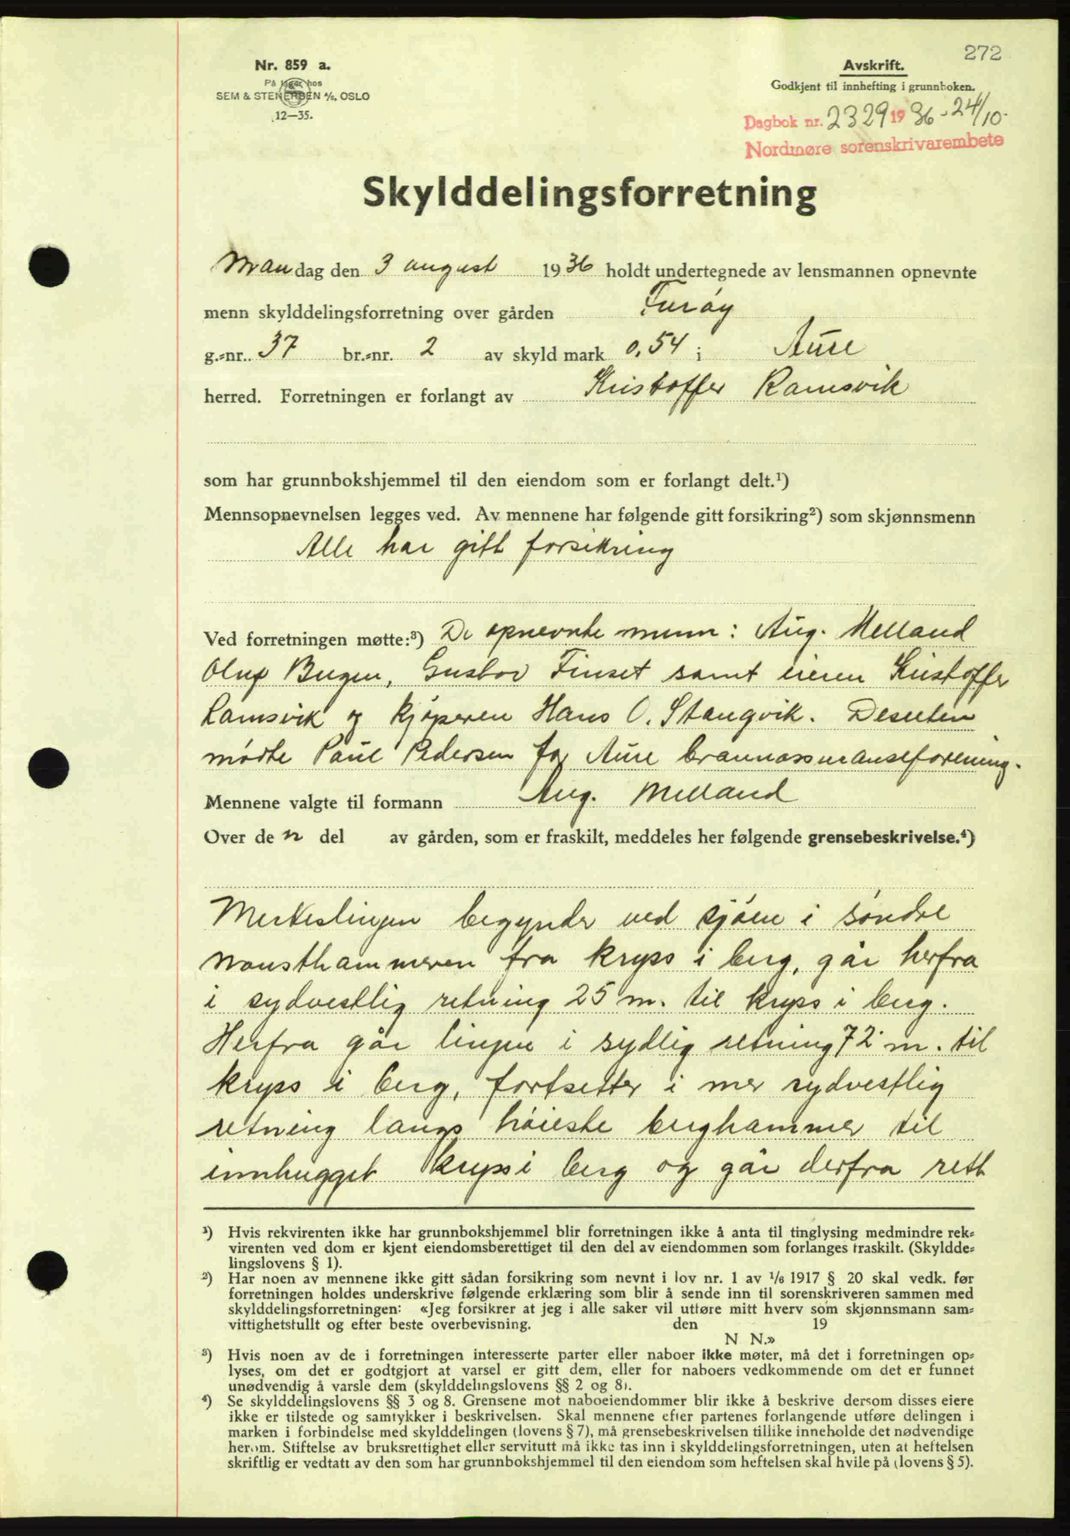 272
Nr. 859 a.
På lager hos
SEM & STENERSEN A/S, OSLO
12—35.
Avskrift.
Godkjent til innhefting i grunnboken.
Dagbok nr. 2329 1936 - 24/10-
Nordmøre sorenskrivarembete
Skylddelingsforretning
Mandag den 3 august 1936 holdt undertegnede av lensmannen opnevnte
menn skylddelingsforretning over gården Furøy
g.-nr. 37 br.-nr. 2 av skyld mark 0,54 i Aure
herred. Forretningen er forlangt av Kristoffer Ramsvik
som har grunnbokshjemmel til den eiendom som er forlangt delt.¹)
Mennsopnevnelsen legges ved. Av mennene har følgende gitt forsikring²) som skjønnsmenn
Alle har gitt forsikring
Ved forretningen møtte:³) De opnevnte menn: Aug. Melland
Oluf Bugen, Gustav Finset samt eieren Kristoffer
Ramsvik og kjøperen Hans O. Stangvik. Desuten
mødte Paul Pedersen for Aure brannassuranseforening.
Mennene valgte til formann Aug. Melland
Over den del av gården, som er fraskilt, meddeles her følgende grensebeskrivelse.⁴)
Merkeslinjen begynder ved sjøen i søndre
nausthammeren fra kryss i berg, går herfra
i sydvestlig retning 25 m. til kryss i berg.
Herfra går linjen i sydlig retning 72 m. til
kryss i berg, fortsetter i mer sydvestlig
retning langs høieste berghammer til
innhugget kryss i berg og går derfra rett
¹) Hvis rekvirenten ikke har grunnbokshjemmel blir forretningen ikke å anta til tinglysing medmindre rek-
virenten ved dom er kjent eiendomsberettiget til den del av eiendommen som forlanges fraskilt. (Skyldde-
lingslovens § 1).
²) Har noen av mennene ikke gitt sådan forsikring som nevnt i lov nr. 1 av 1/6 1917 § 20 skal vedk. før
forretningen holdes underskrive følgende erklæring som blir å sende inn til sorenskriveren sammen med
skylddelingsforretningen: «Jeg forsikrer at jeg i alle saker vil utføre mitt hverv som skjønnsmann sam-
vittighetsfullt og efter beste overbevisning. den 19
N N.»
³) Hvis noen av de i forretningen interesserte parter eller naboer ikke møter, må det i forretningen op-
lyses, om det er godtgjort at varsel er gitt dem, eller for naboers vedkommende om det er funnet
unødvendig å varsle dem (skylddelingslovens §§ 2 og 8).
⁴) Se skylddelingslovens §§ 3 og 8. Grensene mot naboeiendommer blir ikke å beskrive dersom disses eiere
ikke er tilstede og samtykker i beskrivelsen. Skal mennene efter partenes forlangende utføre delingen i
marken i forbindelse med skylddelingen (lovens § 7), må grensebeskrivelsen tillike inneholde det nødvendige
herom. Stiftelse av bruksrettighet eller servitutt må ikke tas inn i skylddelingsforretningen, uten at heftelsen
skriftlig er vedtatt av den som har grunnbokshjemmel til den eiendom som heftelsen skal hvile på (lovens § 5).